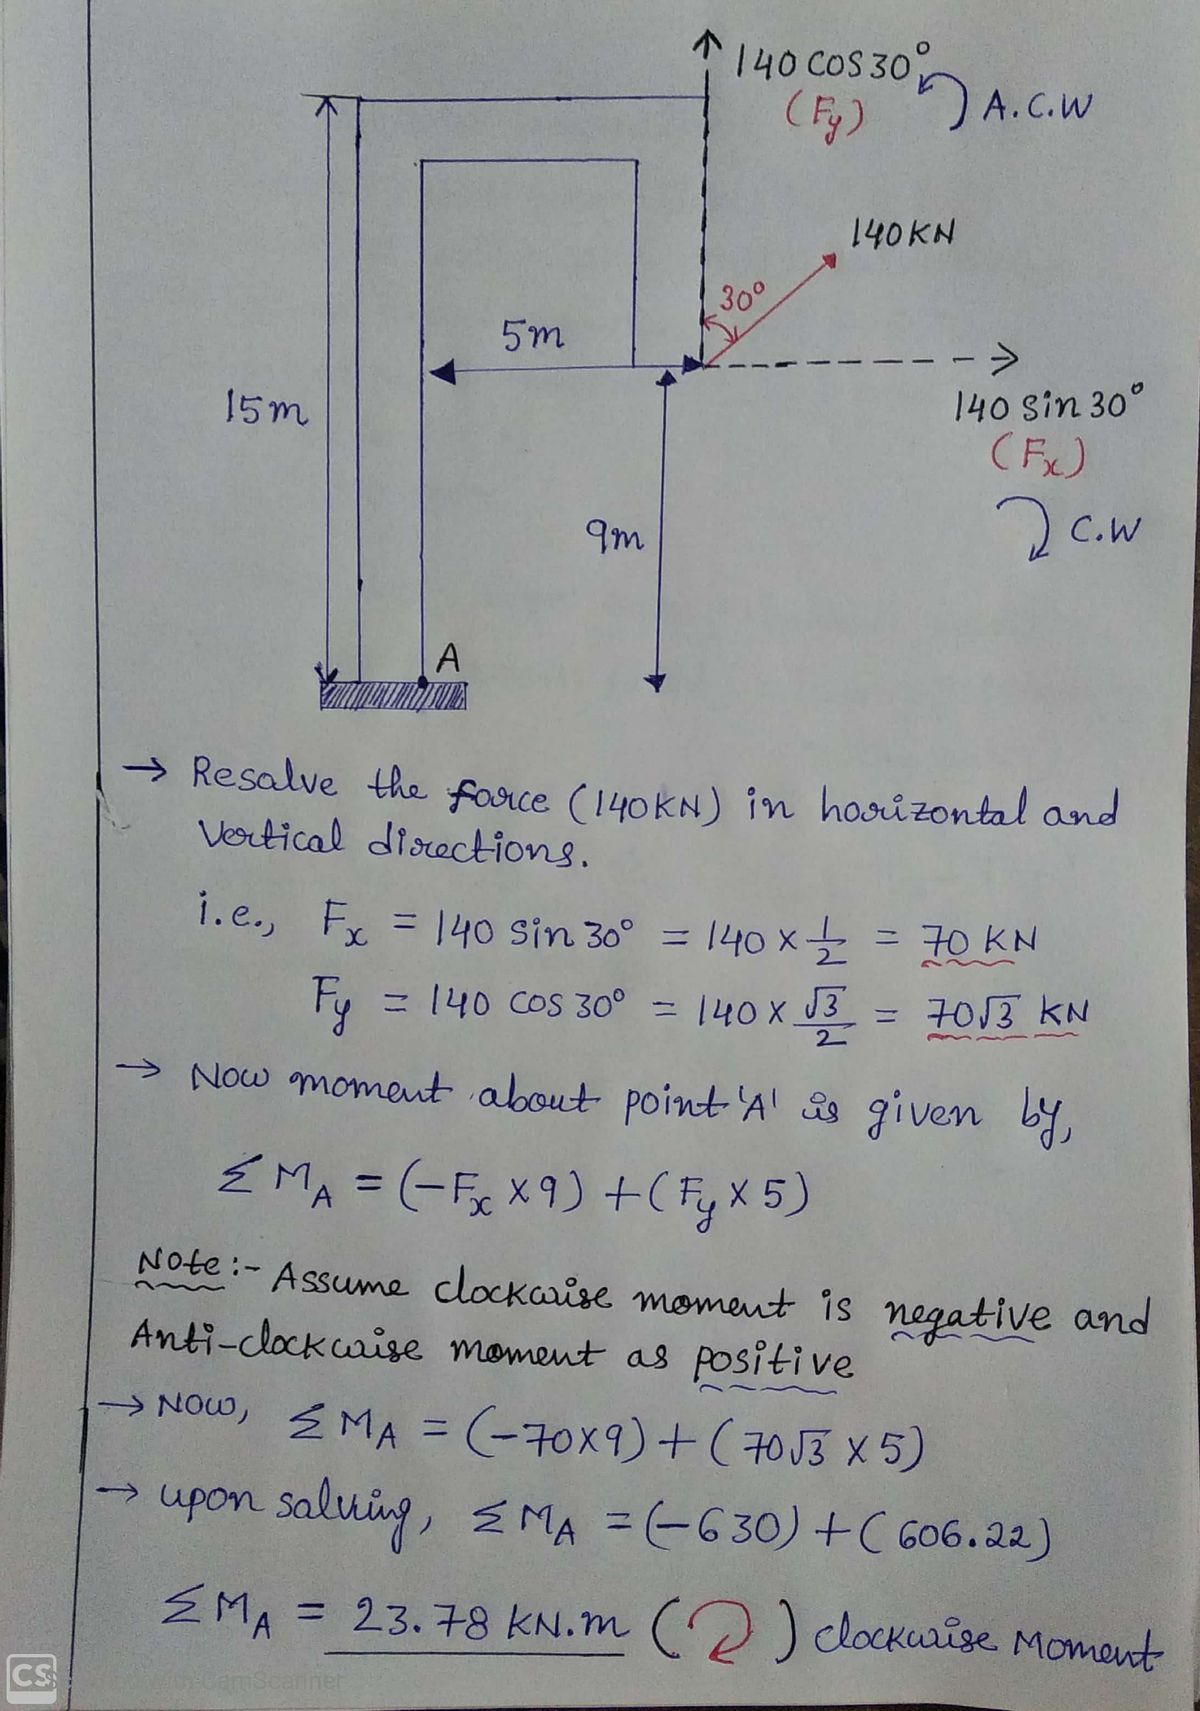 140 COS 30°
(Fy)
A.C.W
140KN
30°
5m
15m
140 Sin 30°
(Fx)
C.W
9m
A
→ Resolve the force (140KN) in horizontal and
Vertical directions.
i.e., Fx = 140 Sin 30° = 140 × 1/2 = 70 KN
Fy = 140 COS 30° = 140 × √3/2 = 70√3 KN
→ Now moment about point 'A' is given by,
Σ MA = (-Fx × 9) + (Fy × 5)
Note :- Assume clockwise moment is negative and
Anti-clockwise moment as positive
→ Now, Σ MA = (-70×9) + (70√3 × 5)
→ upon solving, Σ MA = (-630) + (606.22)
Σ MA = 23.78 KN.m ( ) clockwise Moment
CS